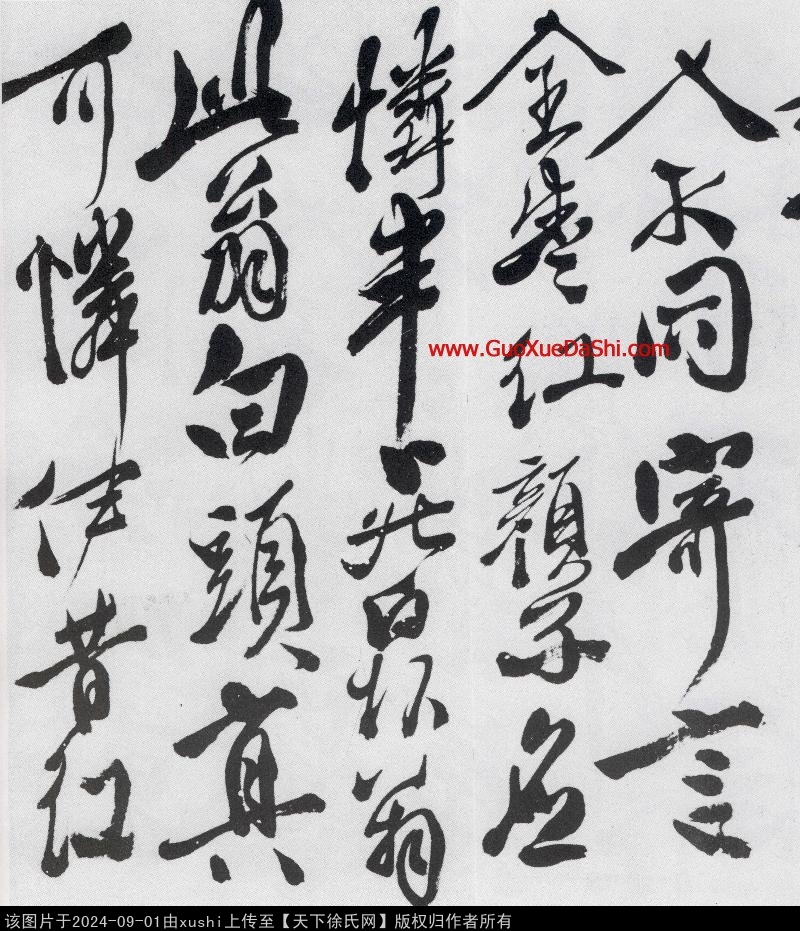 人不同寄言
全盛紅顏子應
憐半死白頭翁
此翁白頭真
可憐伊昔紅
www.GuoXueDaShi.com
该图片于2024-09-01由xushi上传至【天下徐氏网】版权归作者所有